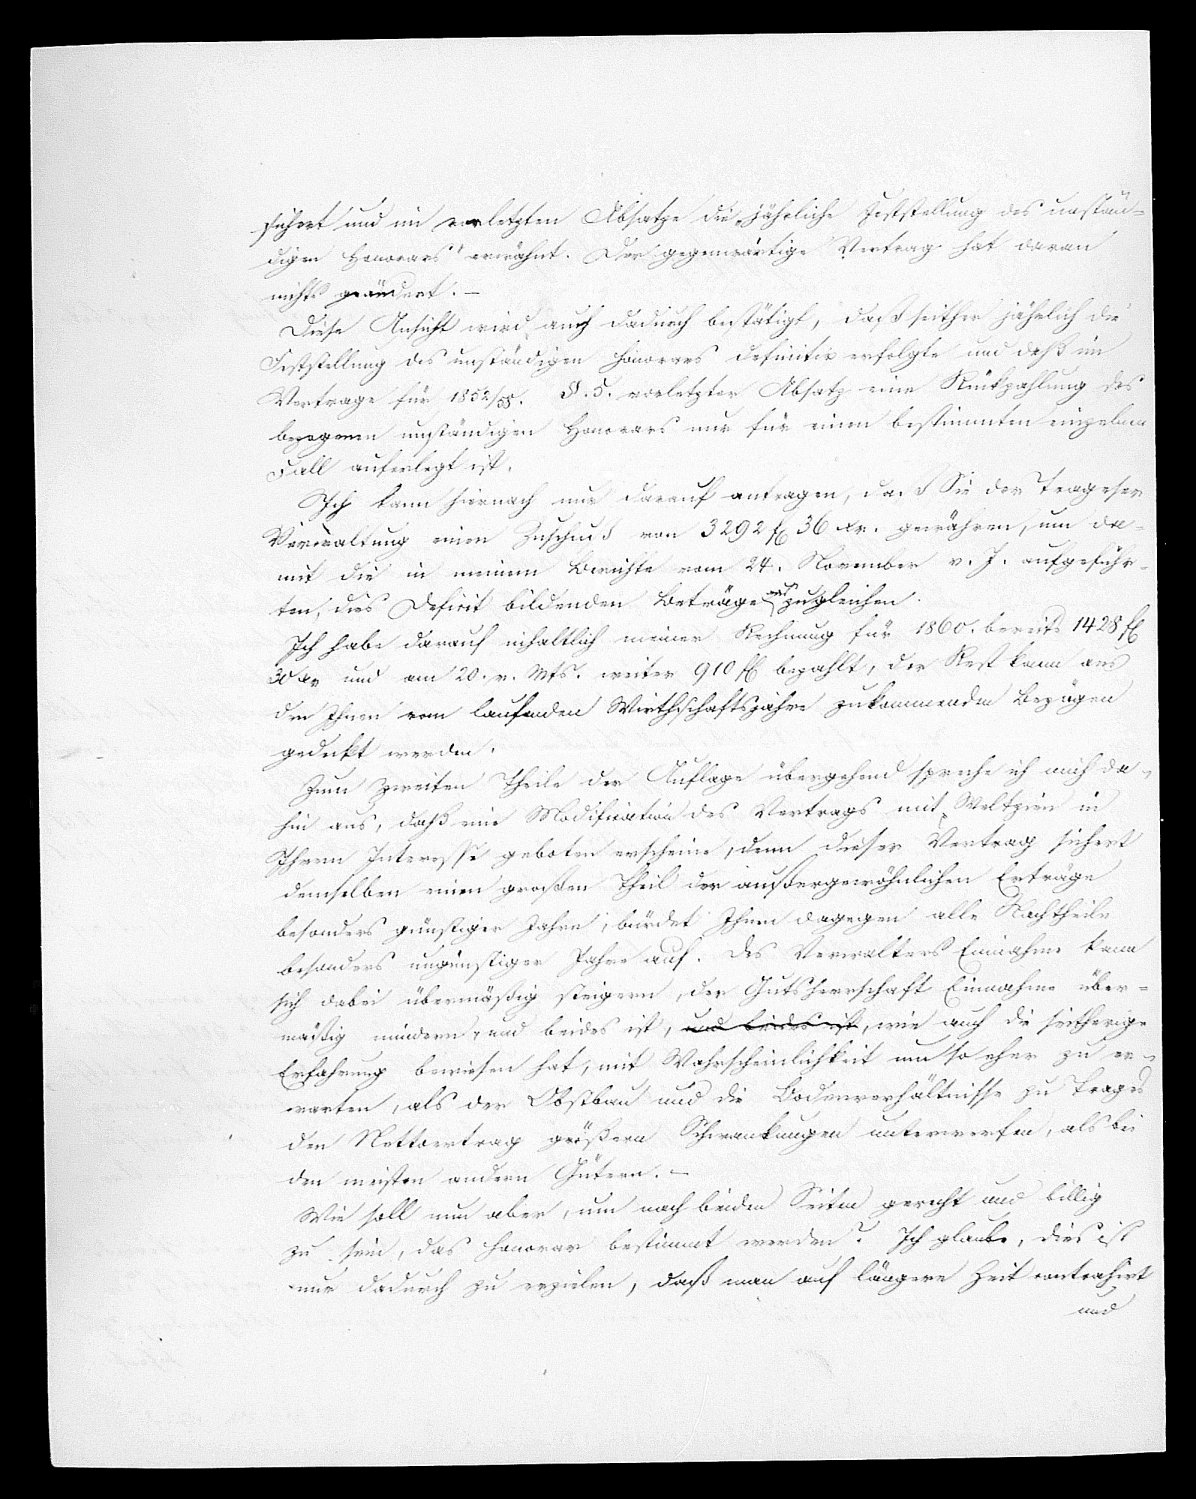 führt und im vorletzten Absatze die „jährliche Feststellung des unstän-
digen Honorars“ erwähnt. Der gegenwärtige Vertrag hat daran
nichts geändert. –
Diese Ansicht wird auch dadurch bestätigt, daß seither jährlich die
Feststellung des unständigen Honorars definitiv erfolgte und daß im
Vertrage für 1852/58. §. 5. vorletzter Absatz eine Rückzahlung des
bezogenen unständigen Honorars nur für einen bestimmten einzelnen
Fall auferlegt ist.
Ich kann hiernach nur darauf antragen, daß Sie der Trageser
Verwaltung einen Zuschuß von 3292 fl 36 Xr. gewähren, um da-
mit die in meinem Berichte vom 24. November v. J. aufgeführ-
ten, dies Deficit bildenden Beträge auszugleichen.
Ich habe darauf inhaltlich meiner Rechnung für 1860. bereits 1428 fl
30 Xr und am 20. v. Mts. weiter 910 fl bezahlt, der Rest kann aus
den Ihnen vom laufenden Wirthschaftsjahre zukommenden Bezügen
gedeckt werden.
Zum zweiten Theile der Auflage übergehend spreche ich mich da-
hin aus, daß eine Modification des Vertrags mit Weltzien in
Ihrem Interesse geboten erscheine, denn dieser Vertrag sichert
demselben einen großen Theil der außergewöhnlichen Erträge
besonders günstiger Jahre, bürdet Ihnen dagegen alle Nachtheile
besonders ungünstiger Jahre auf. Des Verwalters Einnahme kann
sich dabei übermäßig steigern, der Gutsherrschaft Einnahme über-
mäßig mindern, und beides ist, und beides ist, wie auch die seitherige
Erfahrung bewiesen hat, mit Wahrscheinlichkeit um so eher zu er-
warten, als der Obstbau und die Bodenverhältnisse zu Trages
den Nettoertrag größern Schwankungen unterwerfen, als bei
den meisten andern Gütern. –
Wie soll nun aber, um nach beiden Seiten gerecht und billig
zu sein, das Honorar bestimmt werden? Ich glaube, dies ist
nur dadurch zu erzielen, daß man auf längere Zeit contrahirt
und